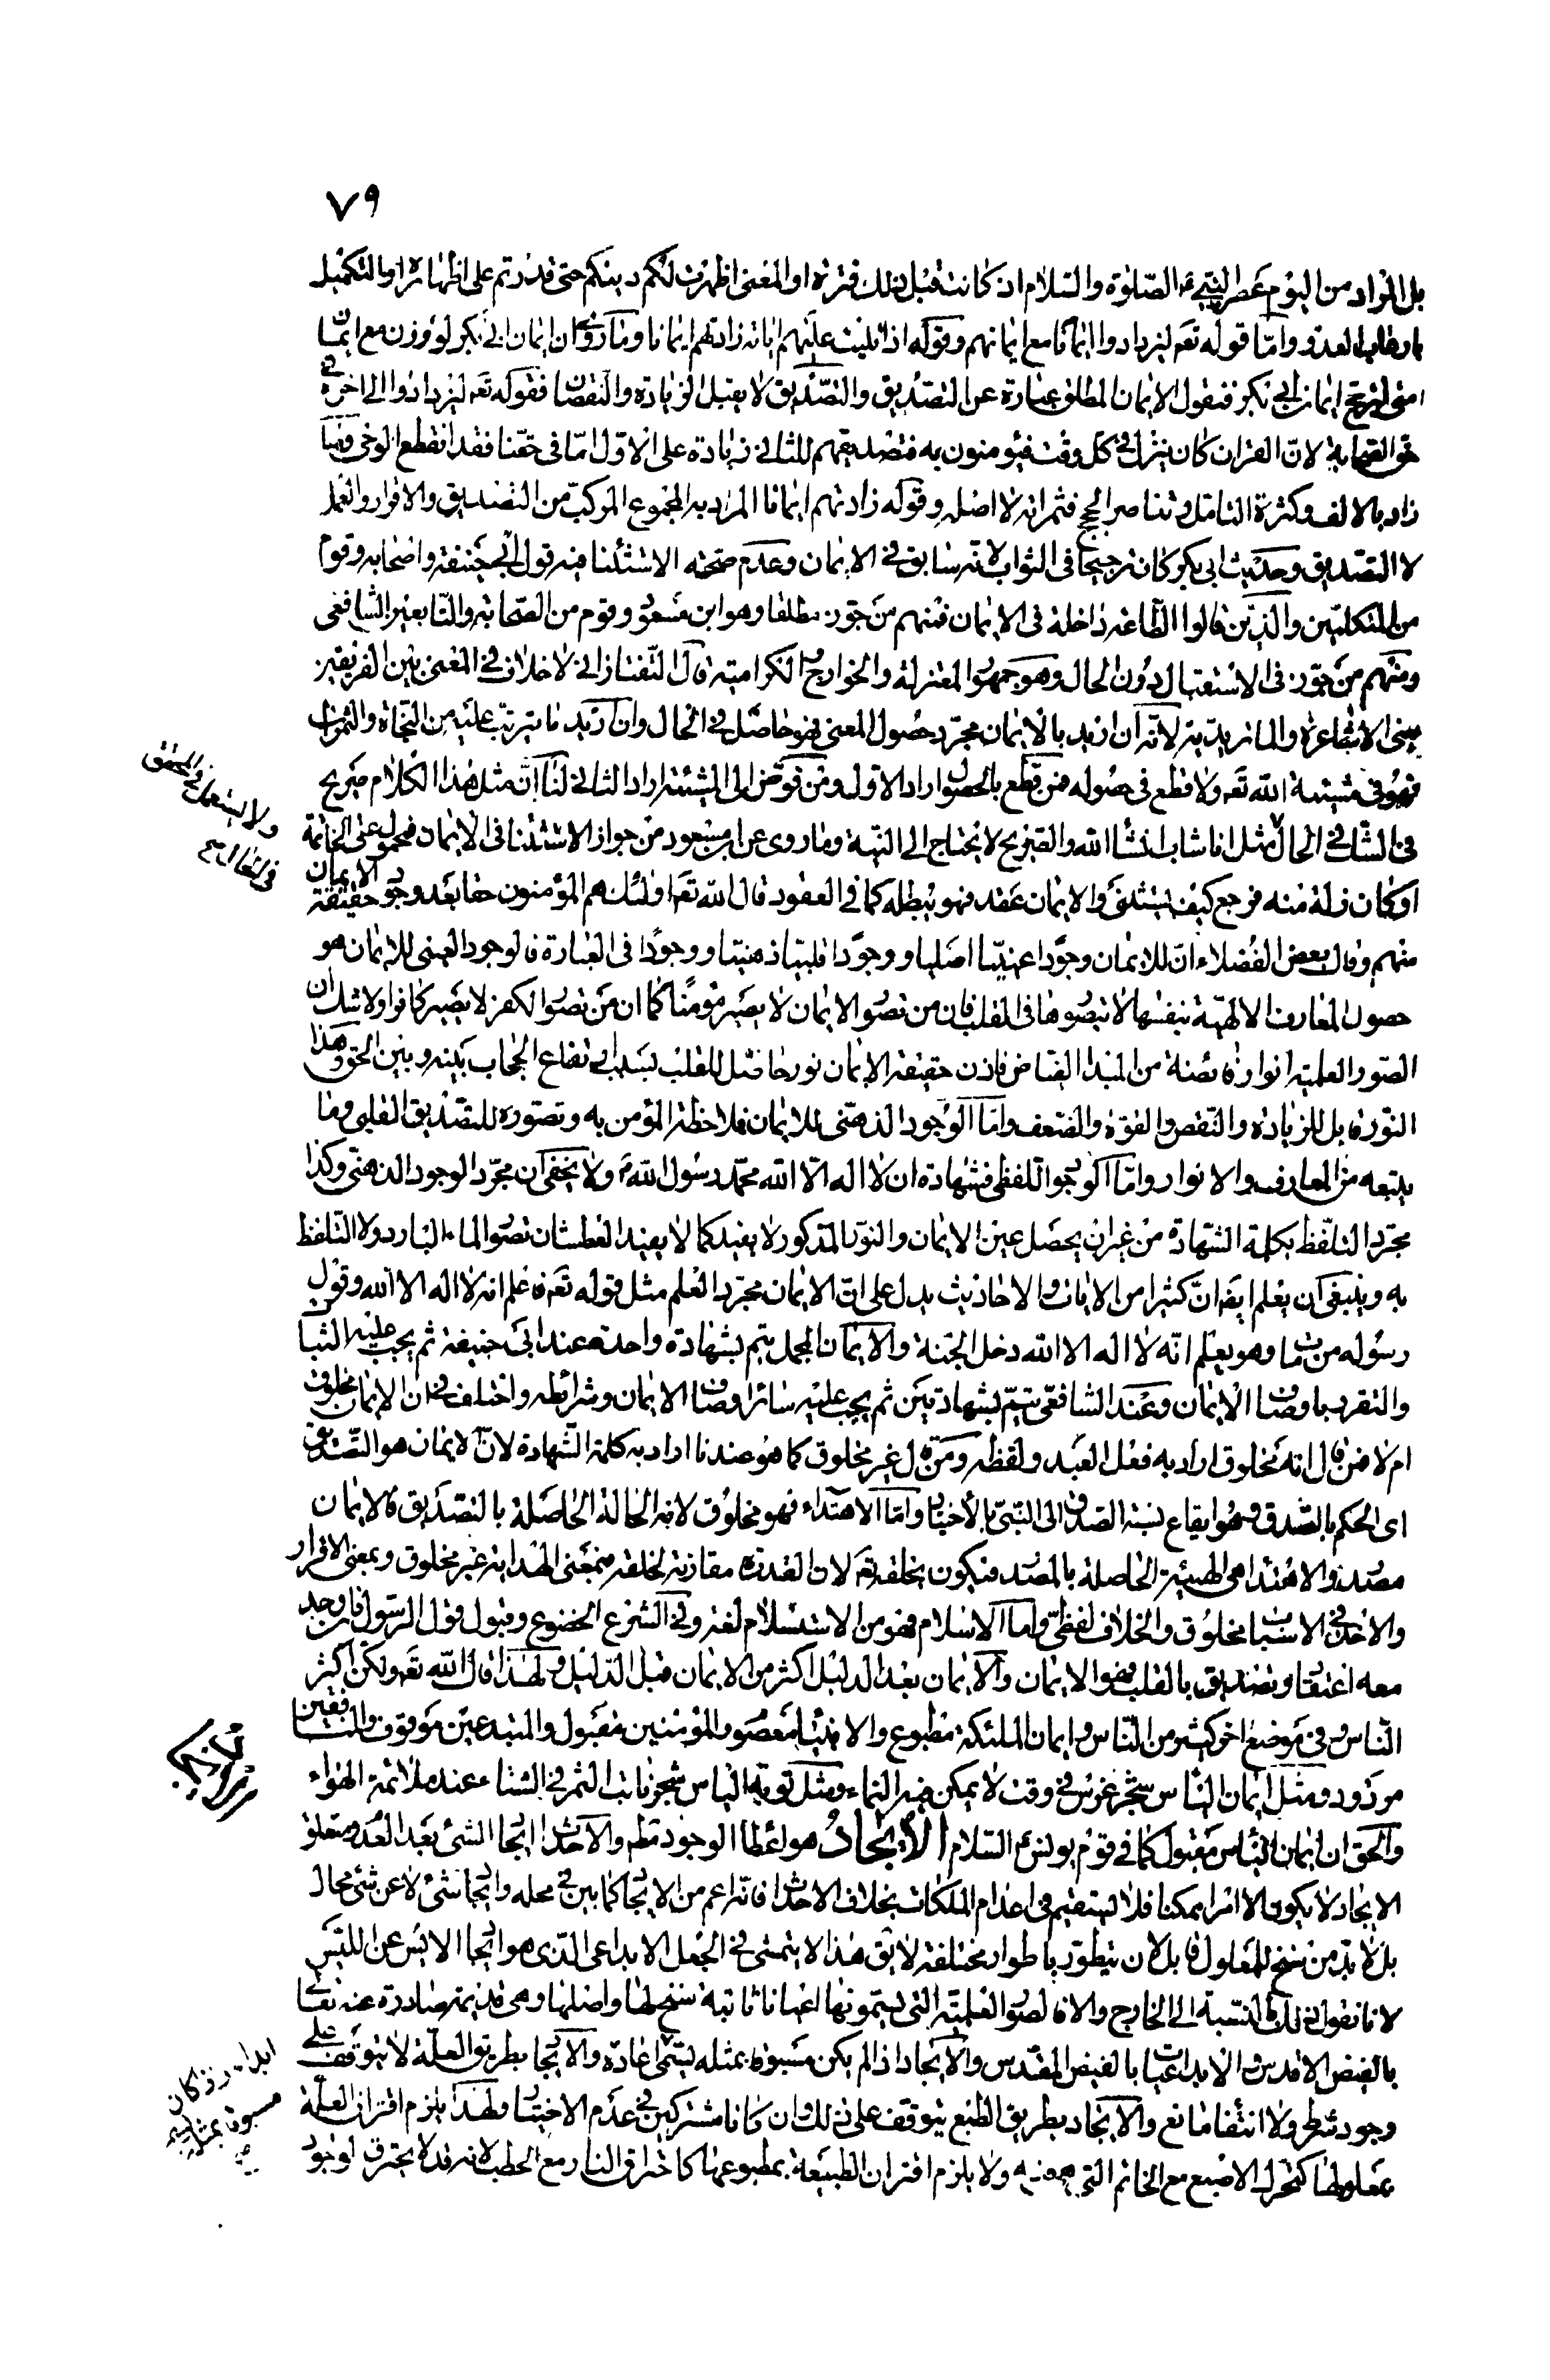 ٧٩
بل المراد من اليوم عصر النبى عم الصلوة والسلام اذ كانت قبل ذلك فترة او المعنى اظهرت لكم دينكم حتى قدرتم على اظهاره والتكميل
بارعاب العدو واما قوله تعه ليزدادوا ايمانا مع ايمانهم وقوله اذا تليت عليهم اياته زادتهم ايمانا وما روى ان ايمان ابى بكر لو وزن مع ايمان
امتى لترجح ايمان ابى بكر فنقول الايمان المطلق عبارة عن التصديق والتصديق لا يقبل الزيادة والنقصان فقوله تعه ليزدادوا الى اخره فى
حق الصحابة لان القران كان ينزل فى كل وقت فيؤمنون به فتصديقهم للثانى زيادة على الاول اما فى حقنا فقد انقطع الوحى وما
زاد بالالف وكثرة التامل وتناصر الحجج فثمراته لا اصله وقوله زادتهم ايمانا المراد به المجموع المركب من التصديق والاقرار والعمل
لا التصديق وحديث ابى بكر كان ترجيحا فى الثواب لانه سابق فى الايمان وعدم صحة الاستثنا فيه قول ابى حنيفة واصحابه وقوم
من المتكلمين والذين قالوا الطاعة داخلة فى الايمان فمنهم من جوز مطلقا وهو ابن مسعود وقوم من الصحابة والتابعين والشافعى
ومنهم من جوز فى الاستقبال دون الحال وهو جمهور المعتزلة والخوارج والكرامية قال التفتازانى لا خلاف فى المعنى بين الفريقين
يعنى الاشاعرة والماتريدية لانه ان اريد بالايمان مجرد حصول المعنى فهو حاصل فى الحال وان اريد ما يترتب عليه من النجاة والثمرات
فهو فى مشيئة الله تعه ولا قطع فى حصوله فمن قطع بالحصول اراد الاول ومن فوض الى المشيئة اراد الثانى لنا ان مثل هذا الكلام صريح
فى الشك فى الحال ولا يستعمل فى المحقق فى الحال مثل انا شاب انشا الله والصريح لا يحتاج الى النية وما روى عن ابن مسعود من جواز الاستثنا فى الايمان فمحمول على الخاتمة
او كان زلة منه فرجع كيف يستثنى والايمان عقد فهو يبطله كما فى العقود قال الله تعه اولئك هم المؤمنون حقا بعد وجود حقيقة الايمان
منهم وقال بعض الفضلاء ان للايمان وجودا عينيا اصليا ووجودا قلبيا ذهنيا ووجودا فى العبارة فالوجود العينى للايمان هو
حصول المعارف الالهية بنفسها لا بتصورها فى القلب فان من تصور الايمان لا يصير مؤمنا كما ان من تصور الكفر لا يصير كافرا ولا شك ان
الصور العلمية انوار فائضة من المبدا الفياض فاذن حقيقة الايمان نور حاصل للقلب بسبب ارتفاع الحجاب بينه وبين الحق وهذا
النور قابل للزيادة والنقص والقوة والضعف واما الوجود الذهنى للايمان فملاحظة المؤمن به وتصوره للتصديق القلبى وما
يتبعه من المعارف والانوار واما الوجود اللفظى فشهادة ان لا اله الا الله محمد رسول الله ولا يخفى ان مجرد الوجود الذهنى وكذا
مجرد التلفظ بكلمة الشهادة من غير ان يحصل عين الايمان والنور المذكور لا يفيد كما لا يفيد العطشان تصور الماء البارد ولا التلفظ
به وينبغى ان يعلم ايضا ان كثيرا من الايات والاحاديث يدل على ان الايمان مجرد العلم مثل قوله تعه فاعلم انه لا اله الا الله وقول
رسوله من مات وهو يعلم انه لا اله الا الله دخل الجنة والايمان المجمل يتم بشهادة واحدة عند ابى حنيفة ثم يجب عليه الثبات
والتقرر باوصاف الايمان وعند الشافعى يتم بشهادتين ثم يجب عليه سائر اوصاف الايمان وشرائطه واختلف فى ان الايمان مخلوق
ام لا فمن قال انه مخلوق اراد به فعل العبد ولفظه ومن قال غير مخلوق كما هو عندنا اراد به كلمة الشهادة لان الايمان هو التصديق
اى الحكم بالصدق وهو ايقاع نسبة الصدق الى النبى بالاختيار واما الاهتداء فهو مخلوق لانه الحالة الحاصلة بالتصديق فالايمان
مصدر والاهتدا هى الهيئة الحاصلة بالمصدر فيكون بخلقه تعه لان القدرة مقارنة لخلقه فبمعنى الهداية غير مخلوق وبمعنى الاقرار
والاخذ فى الاسباب مخلوق والخلاف لفظى واما الاسلام فهو من الاستسلام لغة وفى الشرع الخضوع وقبول قول الرسول فان وجد
معه اعتقاد وتصديق بالقلب فهو الايمان والايمان بعد الدليل اكثر من الايمان قبل الدليل ولهذا قال الله تعه ولكن اكثر
الناس وفى موضع اخر كثير من الناس وايمان الملئكة مطبوع والانبياء معصوم والمؤمنين مقبول والمبتدعين موقوف والمنافقين
مردود ومثل ايمان الياس شجر غرس فى وقت لا يمكن فيه النماء ومثل توبة الياس شجر نابت اثمر فى الشتاء عند ملائمة الهواء
والحق ان ايمان الياس مقبول كما فى قوم يونس عم السلام الايجاد هو اعطاء الوجود مطم والاحداث ايجاد الشئ بعد العدم ومتعلق
الايجاد لا يكون الا امرا ممكنا فلا يستقيم فى اعدام الملكات بخلاف الاحداث فانه اعم من الايجاد كما بين فى محله وايجاد شئ لا عن شئ محال
بل لا بد من سنخ للمعلول قابل لان يتطور باطوار مختلفة لا يق هذا لا يتمشى فى الجعل الابداعى الذى هو ايجاد الايس عن الليس
لانا نقول ذلك بالنسبة الى الخارج والا فالصور العلمية التى يسمونها اعيانا ثابتة سنخ لها واصلها وهى قديمة صادرة عنه تعالى
بالفيض الاقدس والابداعيات بالفيض المقدس والايجاد اذا لم يكن مسبوقا بمثله يسمى ابداء واذ كان مسبوقا بمثله يسمى اعادة والايجاد بطريق العلة لا يتوقف على
وجود شرط ولا انتفاء مانع والايجاد بطريق الطبع يتوقف على ذلك وان كانا مشتركين فى عدم الاختيار ولهذا يلزم اقتران العلة
بمعلولها كتحرك الاصبع مع الخاتم التى هو فيه ولا يلزم اقتران الطبيعة بمطبوعها كاحراق النار مع الحطب لانه قد لا يحترق لوجود